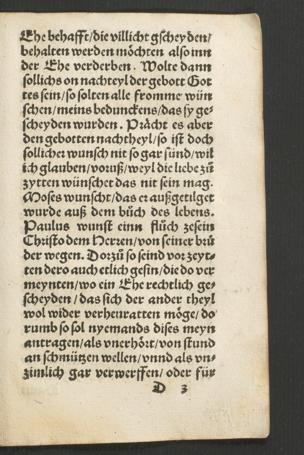 Ehe behafft/die villicht gscheyden/
behalten werden möchten also inn
der Ehe verderben. Wolte dann
sollichs on nachteyl der gebott Got
tes sein/so solten alle fromme wün
schen/meins bedunckens/das sy ge-
scheyden wurden. Prächt es aber
den gebotten nachtheyl/so ist doch
sollicher wunsch nit so gar sünd/wil
ich glauben/voruß/weyl die liebe zů
zytten wünschet das nit sein mag.
Moses wunscht/das er außgetilget
wurde auß dem bůch des lebens.
Paulus wunst einn flůch zesein
Christo dem Herzen/von seiner brů
der wegen. Dorzů so seind vor zeyt-
ten dero auch etlich gesin/die do ver
meynten/wo ein Ehe rechtlich ge-
scheyden/das sich der ander theyl
wol wider verheuratten möge/do
rumb so sol nyemands dises meyn
antragen/als vnerhört/von stund
an schmützen wellen/vnnd als vn-
zimlich gar verwerffen/oder für
D 3